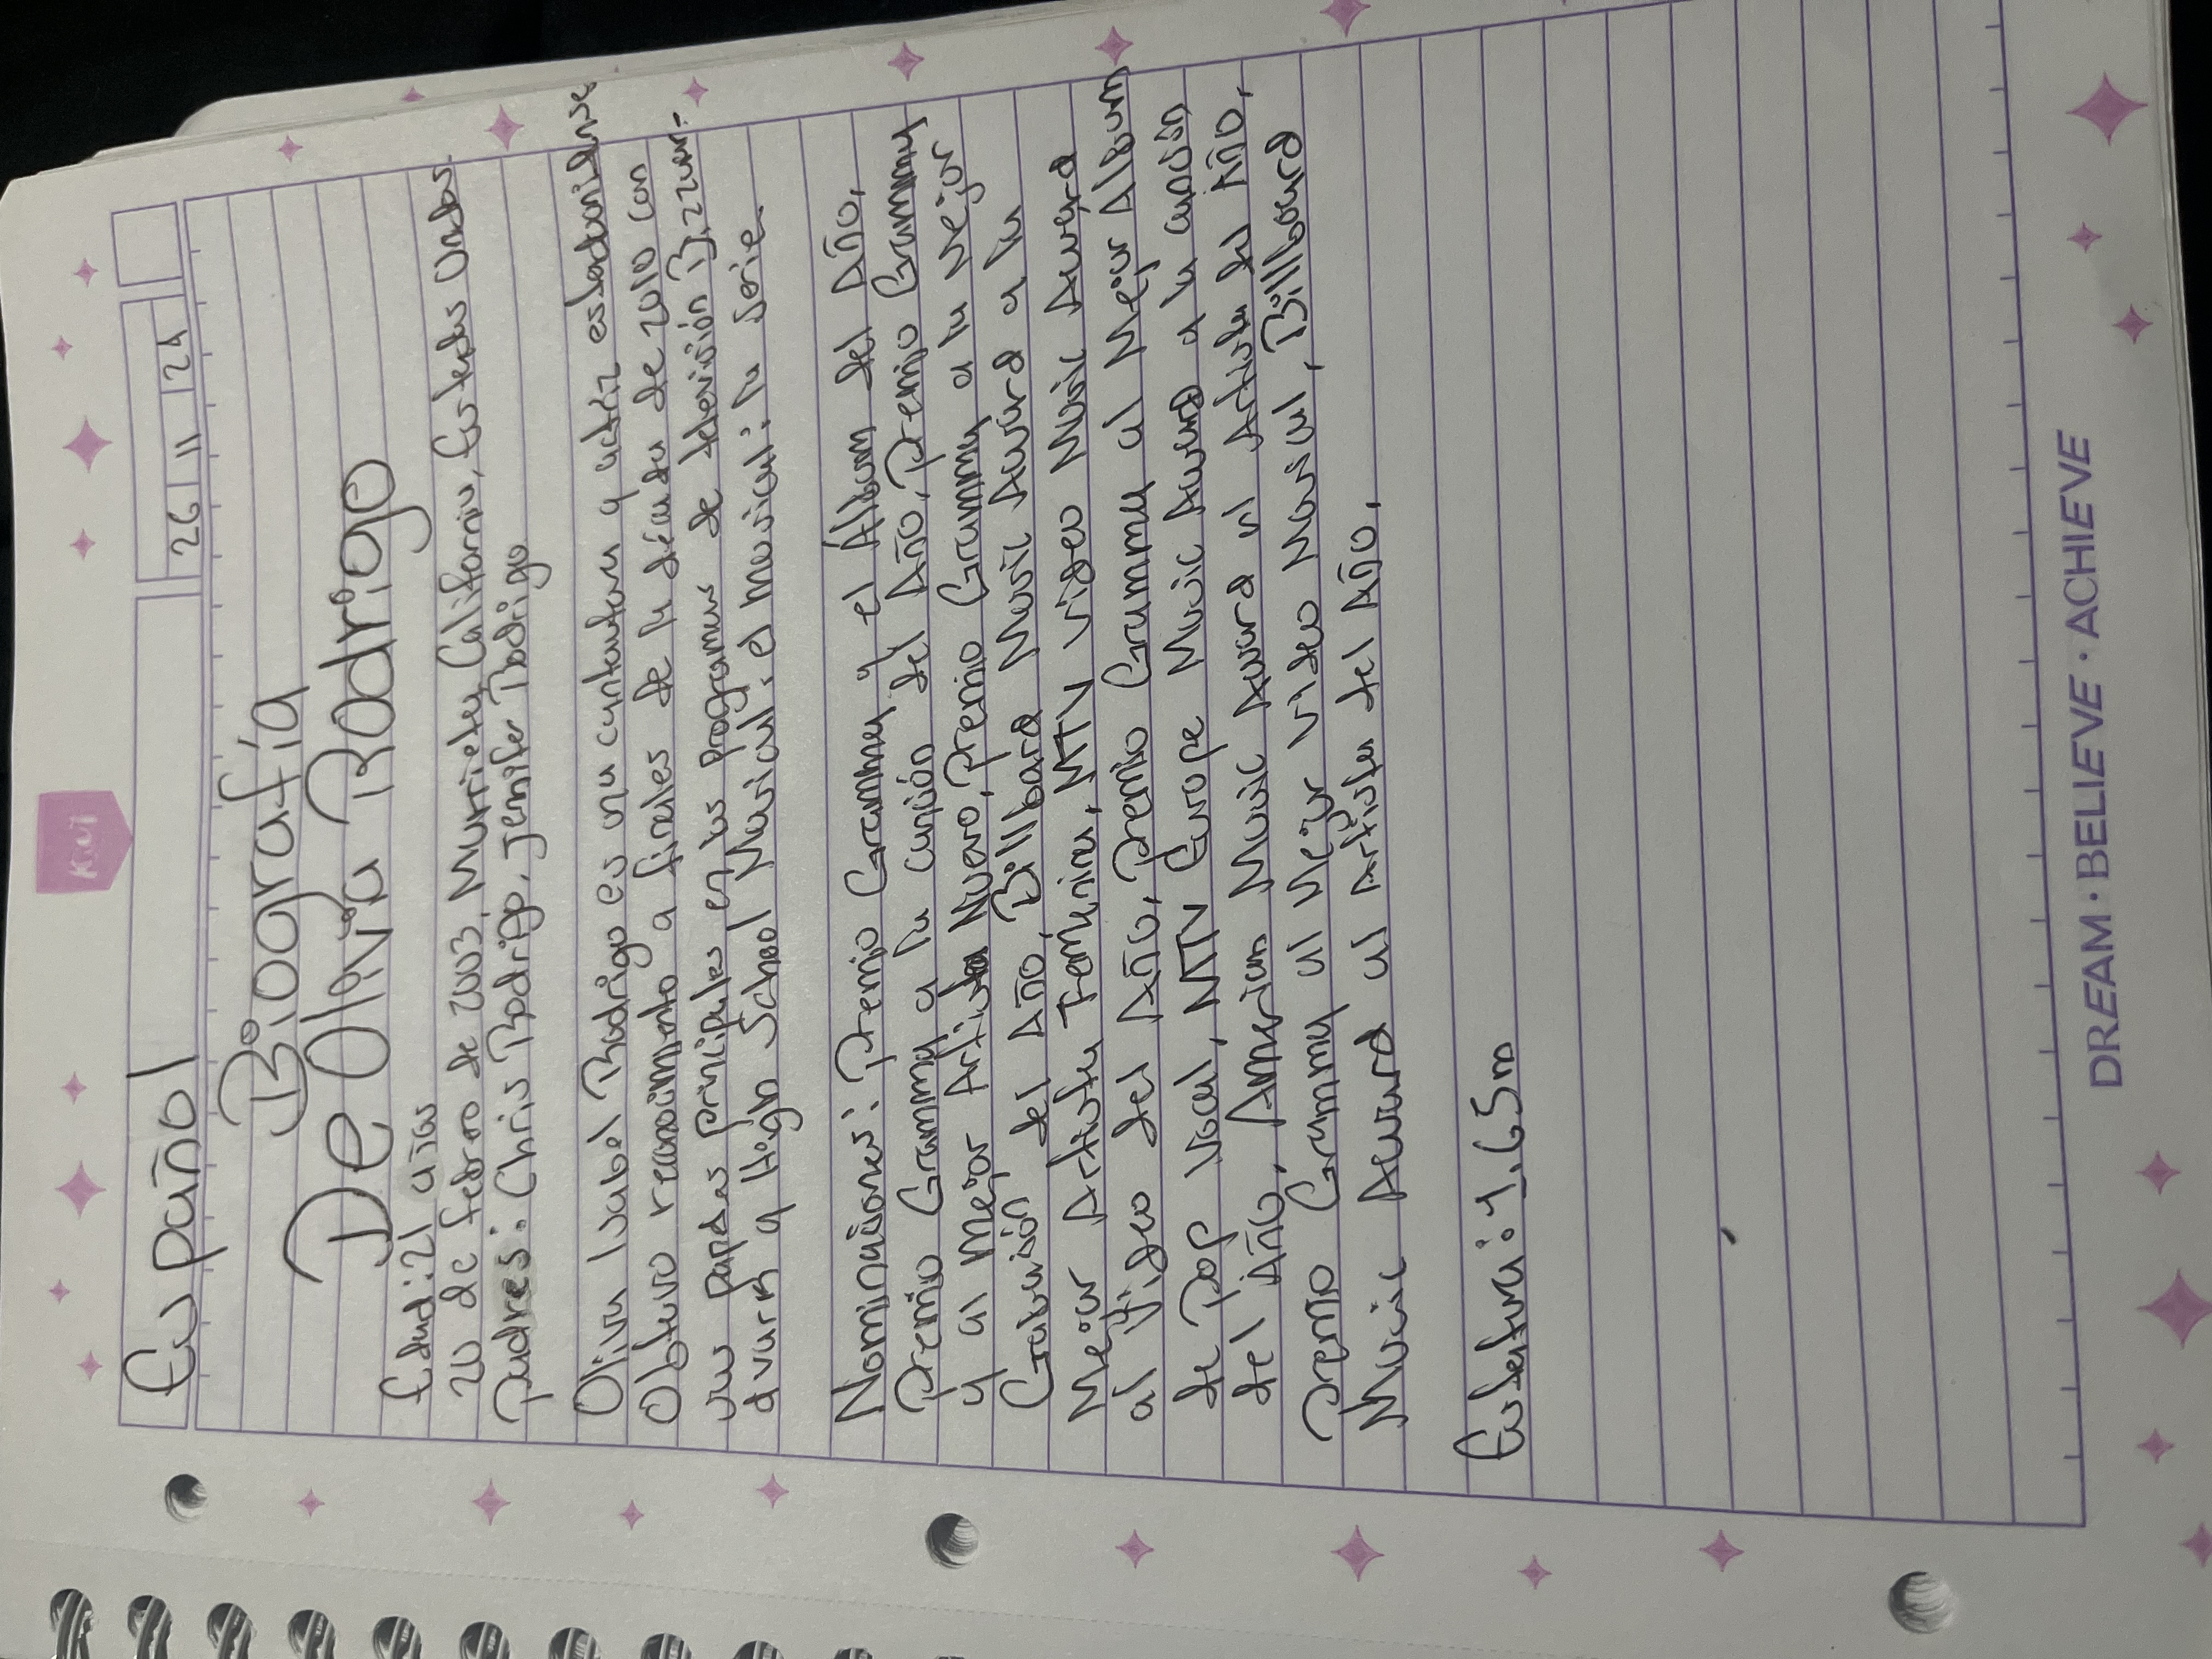 Español
26 11 24
Kiut
Biografía
De Olivia Rodrigo
Edad: 21 años
20 de febrero de 2003, Murrieta, California, Estados Unidos
Padres: Chris Rodrigo, Jenifer Rodrigo
Olivia Isabel Rodrigo es una cantautora y actriz estadounidense
Obtuvo reconocimiento a finales de la década de 2010 con
sus papeles principales en los programas de televisión Bizzar-
dvark y High School Musical: el musical: la serie.
Nominaciones: Premio Grammy y el Álbum del Año,
Premio Grammy a la canción del Año, Premio Grammy
y al mejor Artista Nuevo, Premio Grammy a la Mejor
Grabación del Año, Billboard Music Award a la
Mejor Artista Femenina, MTV video Music Award
al Video del Año, Premio Grammy al Mejor Album
de Pop Vocal, MTV Europe Music Award a la canción
del Año, American Music Award al Artista del Año,
Premio Grammy al Mejor video Musical, Billboard
Music Award al Artista del Año.
Estatura: 1.65m
DREAM · BELIEVE · ACHIEVE